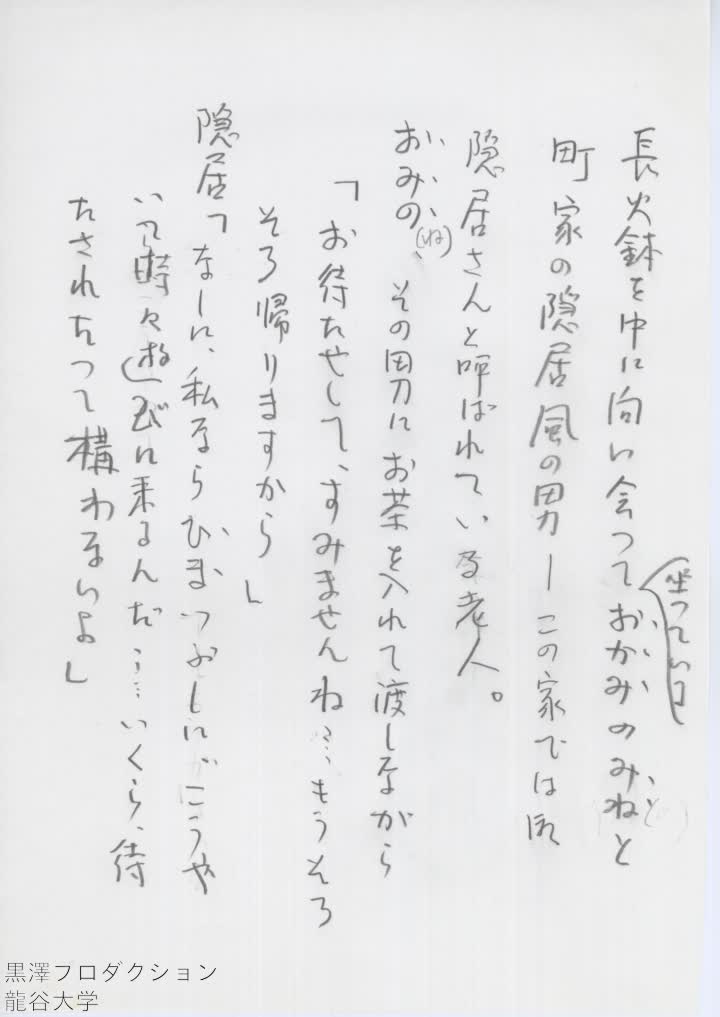 長火鉢を中に向い会つておかみのみねと
坐っている
町家の隠居風の男ーこの家では
隠居さんと呼ばれている老人。
おみの、その男にお茶を入れて渡しながら
(ね)
「お待たせして、すみませんね…もうそろ
そろ帰りますから」
隠居「なーに、私ならひまつぶしに、こうや
いて時々遊びに来るんだ……いくら、待
たされたつて構わないよ」
黒澤プロダクション
龍谷大学